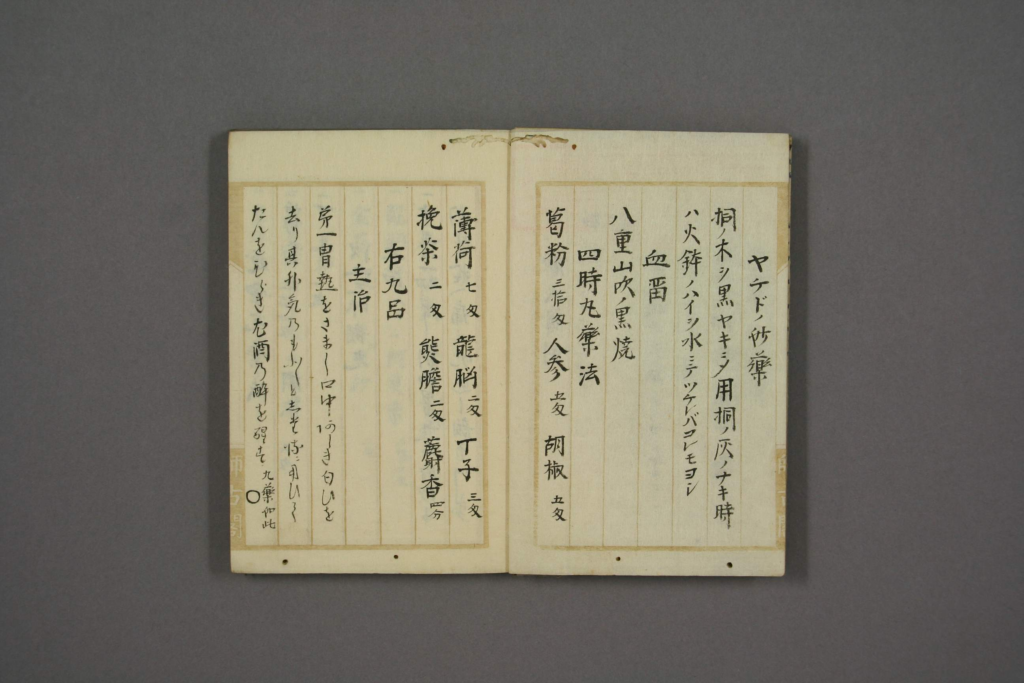 ヤケドノ妙藥
桐ノ木ヲ黒ヤキニシメ用桐ノ灰ノナキ時
ハ火鉢ノハイヲ水ニテツケレバコレモヨシ
血留
八重山吹ノ黒焼
四時丸藥法
葛粉 三拾匁 人参 五匁 胡椒 五匁
薄荷 七匁 龍脳 二匁 丁子 三匁
挽茶 二匁 熊膽 二匁 麝香 四分
右九品
主治
第一胃熱をさまし口中あしき匂ひを
去り
たんをひらき 酒乃醉を 丸藥如此